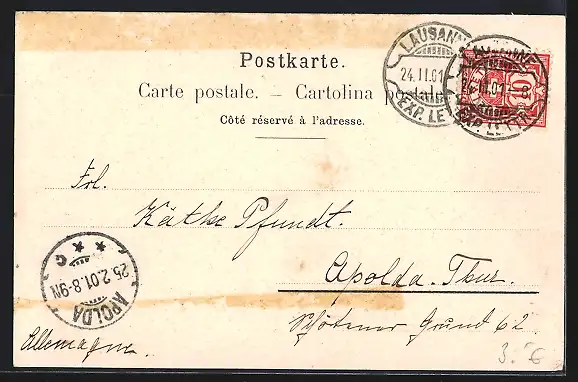 Postkarte.
LAUSANNE
24.II.01
EXP. LETT.
Carte postale. — Cartolina postale.
Côté réservé à l'adresse.
10
Frl.
Käthe Pfundt.
Apolda. Thur.
Grund 62.
APOLDA
25.2.01.8-9N
* * C
Allemagne.
3.-€